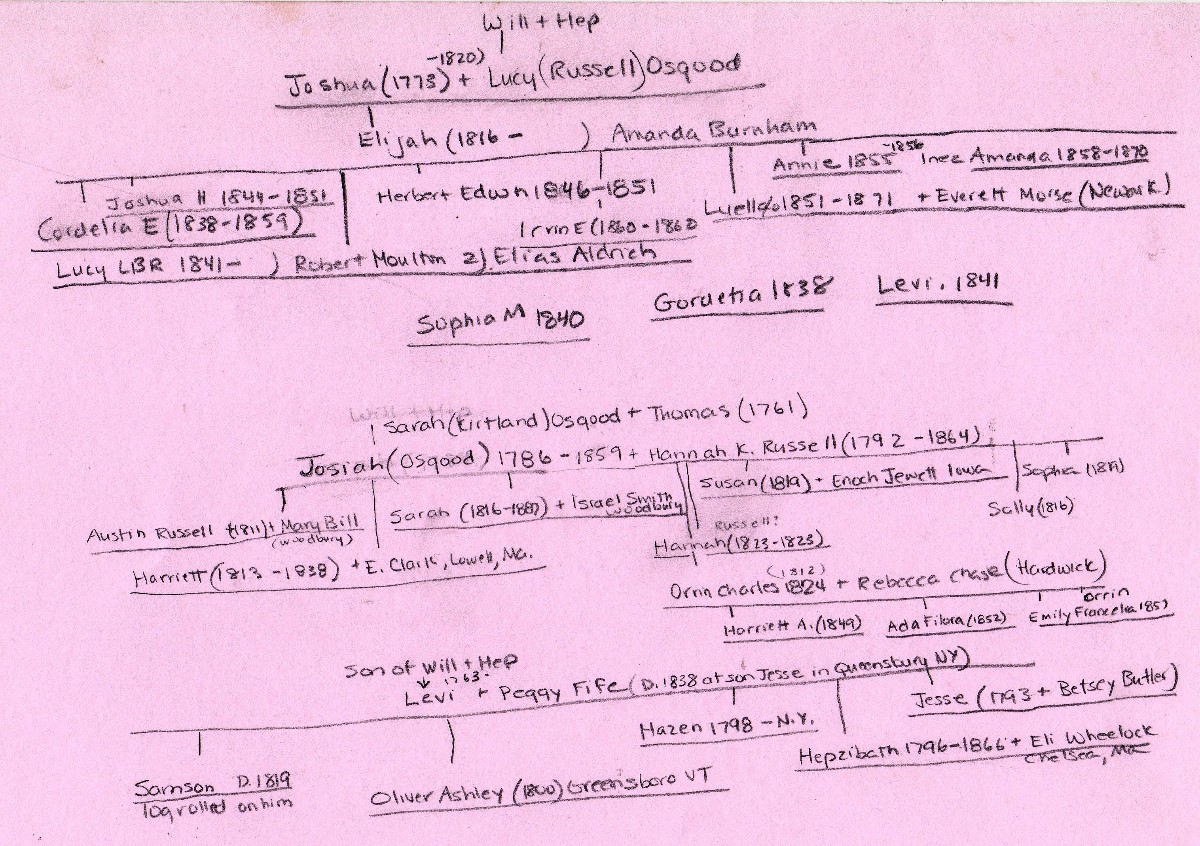 Will + Hep
-1820)
Joshua (1773) + Lucy (Russell) Osgood
Elijah (1816 - ) Amanda Burnham
Annie 1855 -1856 Inez Amanda 1858-1870
Joshua H 1844-1851 Herbert Edwn 1846-1851
Luella 1851-1871 + Everett Morse (Newark)
Cordelia E (1838-1859)
Irvin E (1860-1860
Lucy LBR 1841- ) Robert Moulton 2) Elias Aldrich
Sophia M 1840
1838
Levi. 1841
Will + Hep
Sarah (Kirtland) Osgood + Thomas (1761)
Josiah (Osgood) 1786-1859 + Hannah K. Russell (1792-1864)
Susan (1819) + Enoch Jewett Iowa
Sophia (1819)
Sally (1816)
Austin Russell (1811) + Mary Bill
(Woodbury)
Sarah (1816-1887) + Israel Smith
Woodbury
Russell?
Hannah (1823-1823)
Harriett (1813-1838) + E. Clark, Lowell, Ma.
(1812)
Orrin Charles 1824 + Rebecca Chase (Hardwick)
Harriett A. (1849)
Ada Filora (1852)
Orrin
Emily Francelia 185
Son of Will + Hep
1763.
Levi + Peggy Fife (D. 1838 at son Jesse in Queensbury NY)
Jesse (1793 + Betsey Butler)
Hazen 1798 - N.Y.
Hepzibath 1796-1866 + Eli Wheelock
Chelsea, Ma
Samson D. 1819
log rolled on him
Oliver Ashley (1800) Greensboro VT